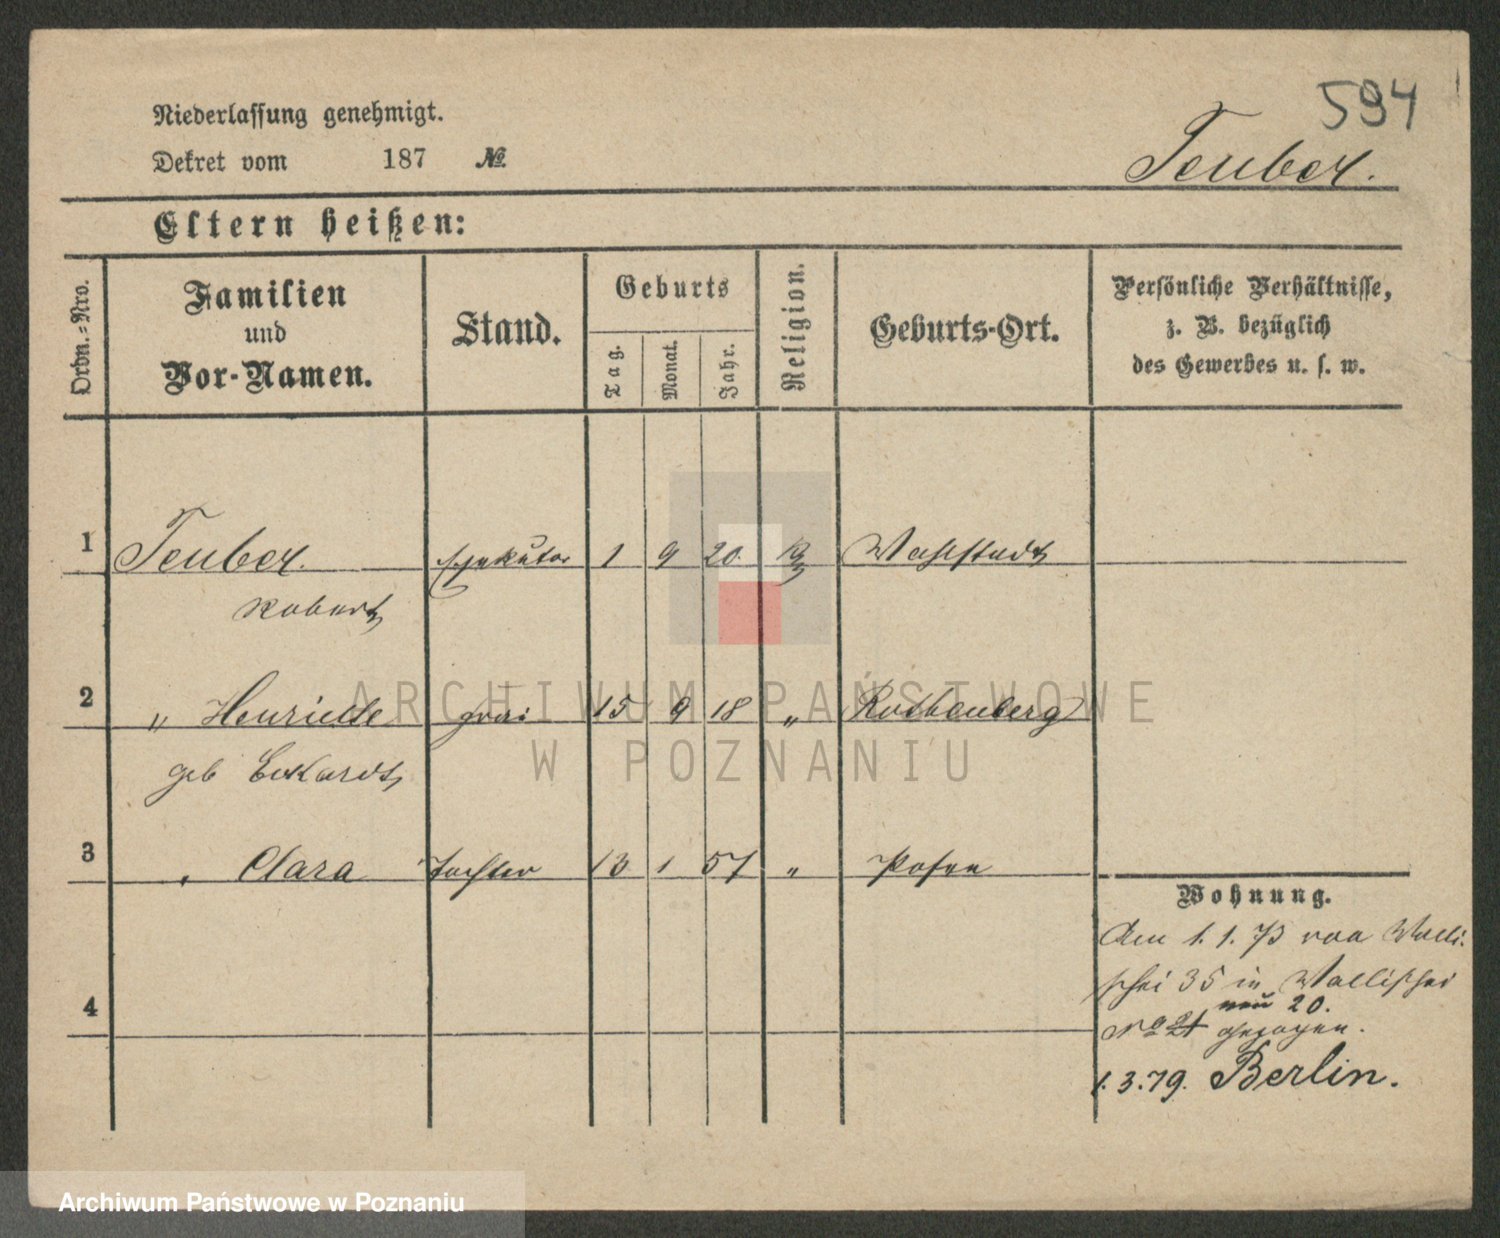 594
Niederlassung genehmigt.
Dekret vom 187 №
Teuber.
Eltern heißen:
Ordn.-Nro.
Familien
und
Vor-Namen.
Stand.
Geburts
Tag.
Monat.
Jahr.
Religion.
Geburts-Ort.
Persönliche Verhältnisse,
z. B. bezüglich
des Gewerbes u. s. w.
1 Teuber. Exekutor 1 9 20. Wahlstadt
Robert
2 " Henriette Frau 15 9 18 " Rothenberg
geb Eckardt
3 " Clara Tochter 13 1 57 " Posen
Wohnung.
Am 1. 1. 73 von Walli-
schei 35 in Wallischei
neu 20.
No 21 gezogen.
1.3.79. Berlin.
4
ARCHIWUM PAŃSTWOWE
W POZNANIU
Archiwum Państwowe w Poznaniu